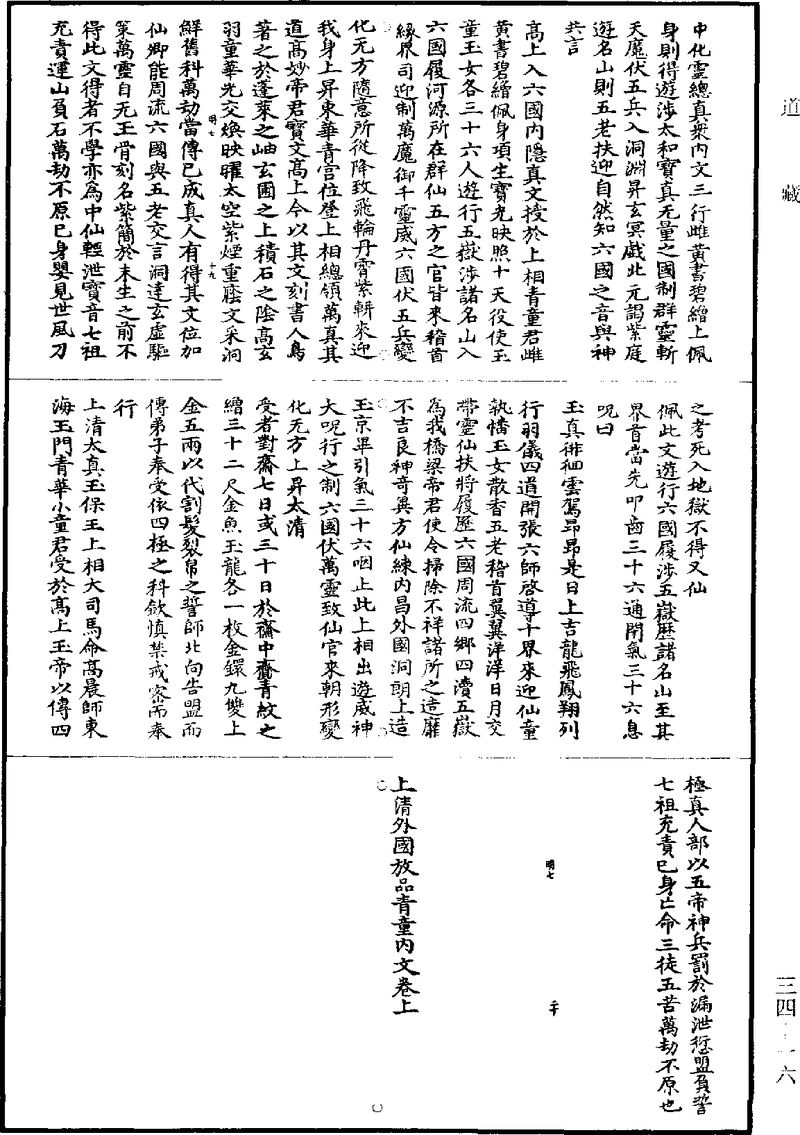 道藏
中化靈總真衆內文三行雌黃書碧繒上佩
身則得遊涉太和寶真无量之國制群靈斬
天魔伏五兵入洞淵昇玄冥戲北元謁紫庭
遊名山則五老扶迎自然知六國之音與神
共言
高上入六國內隱真文授於上相青童君雌
黃書碧繒佩身項生寶光映照十天役使玉
童玉女各三十六人遊行五嶽涉諸名山入
六國履河源所在群仙五方之官皆來稽首
緣界司迎制萬魔御千靈威六國伏五兵變
化无方隨意所從降致飛輪丹霄紫軿來迎
我身上昇東華青宮位登上相總領萬真其
道高妙帝君寶文高上令以其文刻書人鳥
著之於蓬萊之岫玄圃之上積石之陰高玄
羽童華光交煥映曜太空紫煙重蔭文采洞
鮮舊科萬劫當傳已成真人有得其文位加
明七
十九
仙卿能周流六國與五老交言洞達玄虛驅
策萬靈自无玉骨刻名紫簡於未生之前不
得此文得者不學亦為中仙輕泄寶音七祖
充責運山負石萬劫不原已身嬰見世風刀
之考死入地獄不得又仙
佩此文遊行六國履涉五嶽歷諸名山至其
界首當先叩齒三十六通閉氣三十六息
呪曰
玉真徘徊雲駕昂昂是日上吉龍飛鳳翔列
行羽儀四道開張六師啓導十界來迎仙童
執幡玉女散香五老稽首翼翼洋洋日月交
帶靈仙扶將履歷六國周流四鄉四瀆五嶽
為我橋梁帝君使令掃除不祥諸所之造靡
不吉良神奇異方仙練內昌外國洞朗上造
玉京畢引氣三十六咽止此上相出遊威神
大呪行之制六國伏萬靈致仙官來朝形變
化无方上昇太清
受者對齋七日或三十日於齋中齎青紋之
繒三十二尺金魚玉龍各一枚金鐶九雙上
金五兩以代割髮裂帛之誓師北向告盟而
傳弟子奉受依四極之科欽慎禁戒密尚奉
行
上清太真玉保王上相大司馬命高晨師東
海玉門青華小童君受於高上玉帝以傳四
極真人部以五帝神兵罰於漏泄愆盟負誓
七祖充責已身亡命三徒五苦萬劫不原也
明七
二十
上清外國放品青童內文卷上
三四－一六